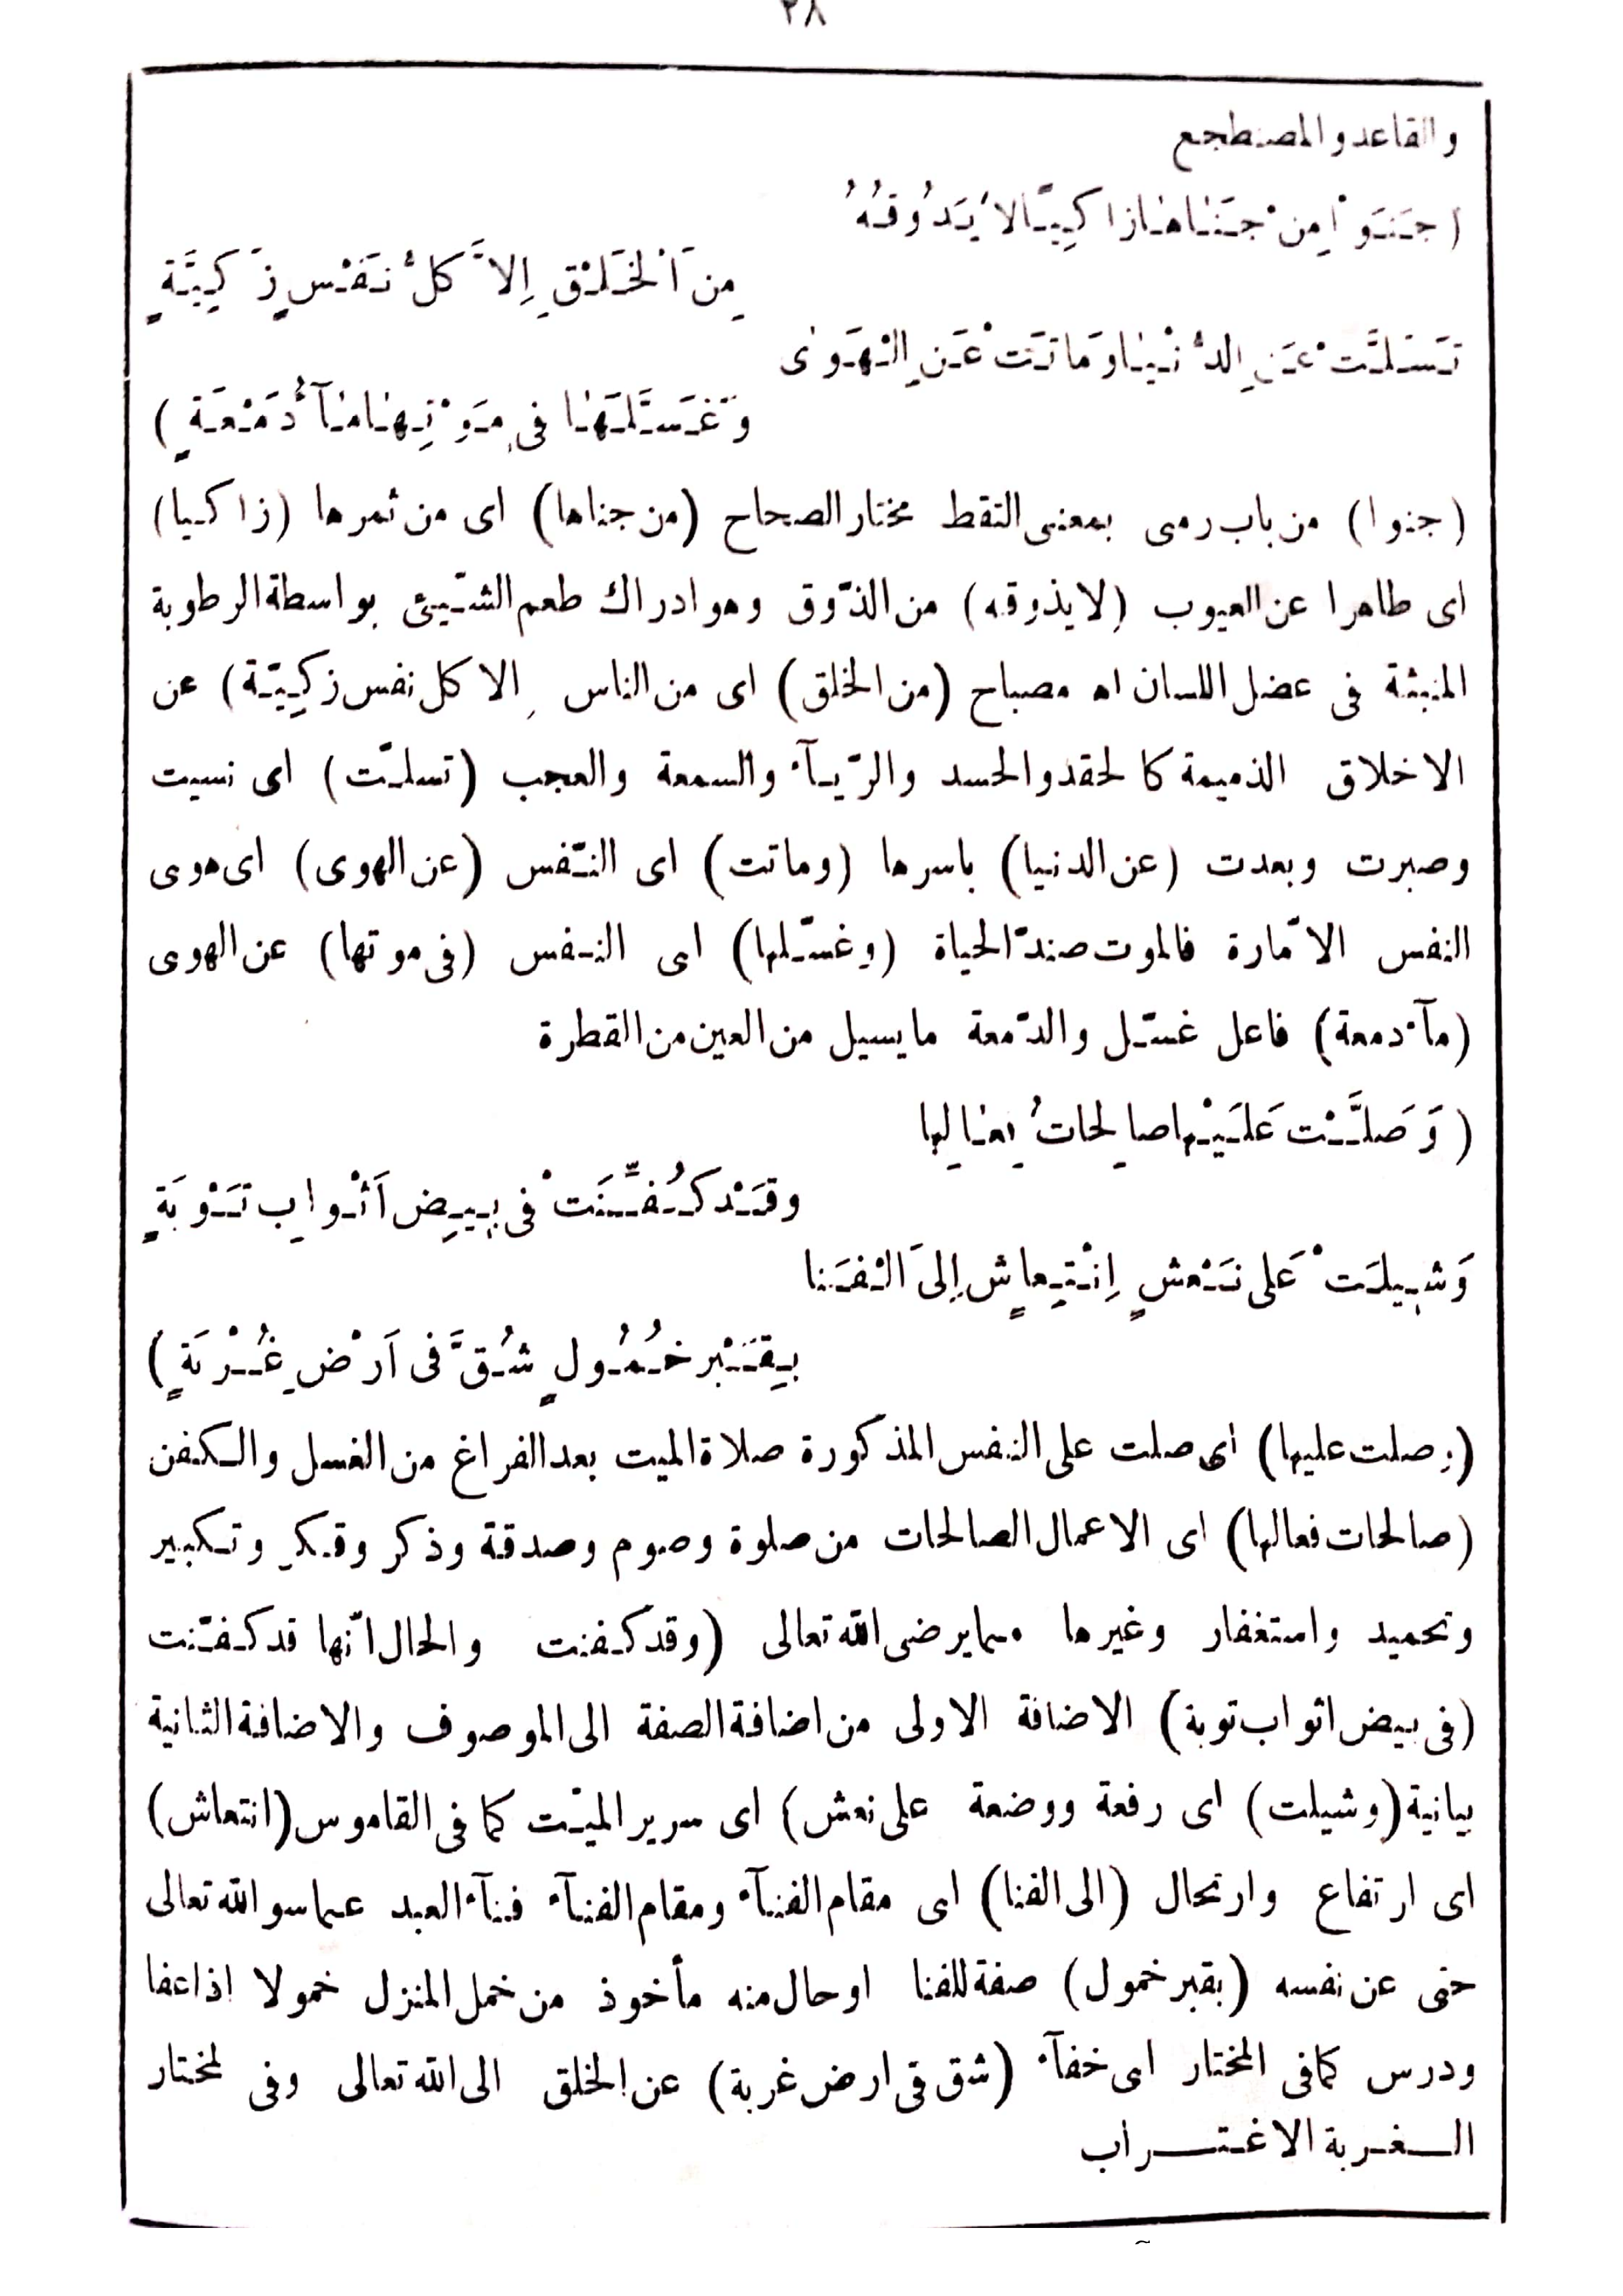 ٢٨
والقاعد والمضطجع
( جَنَوْا مِنْ جَنَاهَا زَاكِيًّا لَا يَذُوقُهُ
مِنَ الْخَلْقِ إِلاَّ كُلُّ نَفْسٍ زَكِيَّةٍ
تَسَلَّتْ عَنِ الدُّنْيَا وَمَاتَتْ عَنِ الْهَوَى
وَغَسَّلَهَا فِى مَوْتِهَا مَآءُ دَمْعَةٍ )
(جنوا) من باب رمى بمعنى التقط مختار الصحاح (من جناها) اى من ثمرها (زاكيا)
اى طاهرا عن العيوب (لا يذوقه) من الذّوق وهو ادراك طعم الشّيئ بواسطة الرطوبة
المنبثة فى عضل اللسان اه مصباح (من الخلق) اى من الناس الا كل نفس زكِيّة) عن
الاخلاق الذميمة كالحقد والحسد والرّيآء والسمعة والعجب (تسلّت) اى نسيت
وصبرت وبعدت (عن الدنيا) باسرها (وماتت) اى النّفس (عن الهوى) اى هوى
النفس الامّارة فالموت ضدّ الحياة (وغسّلها) اى النفس (فى موتها) عن الهوى
(مآء دمعة) فاعل غسّل والدّمعة ما يسيل من العين من القطرة
( وَصَلَّتْ عَلَيْها صالِحاتُ فِعَالِها
وقَدْ كُفِّنَتْ فى بِيِضِ اَثْوابِ تَوْبَةٍ
وَشِيلَتْ عَلى نَعْشٍ اِنْتِعاشٍ إِلىَ الْفَنا
بِقَبْرِ خُمُولٍ شُقَّ فى اَرْضِ غُرْبَةٍ )
(وصلت عليها) اى صلت على النفس المذكورة صلاة الميت بعد الفراغ من الغسل والكفن
(صالحات فعالها) اى الاعمال الصالحات من صلوة وصوم وصدقة وذكر وفكر وتكبير
وتحميد واستغفار وغيرها مما يرضى الله تعالى (وقد كفنت والحال انّها قد كفّنت
(فى بيض اثواب توبة) الاضافة الاولى من اضافة الصفة الى الموصوف والاضافة الثانية
بيانية (وشيلت) اى رفعة ووضعة على نعش) اى سرير الميّت كما فى القاموس (انتعاش)
اى ارتفاع وارتحال (الى الفنا) اى مقام الفنآء ومقام الفنآء فنآء العبد عما سو الله تعالى
حتى عن نفسه (بقبر خمول) صفة للفنا او حال منه مأخوذ من خمل المنزل خمولا اذا عفا
ودرس كما فى المختار اى خفآء (شق فى ارض غربة) عن الخلق الى الله تعالى وفى لمختار
الغربة الاغتراب